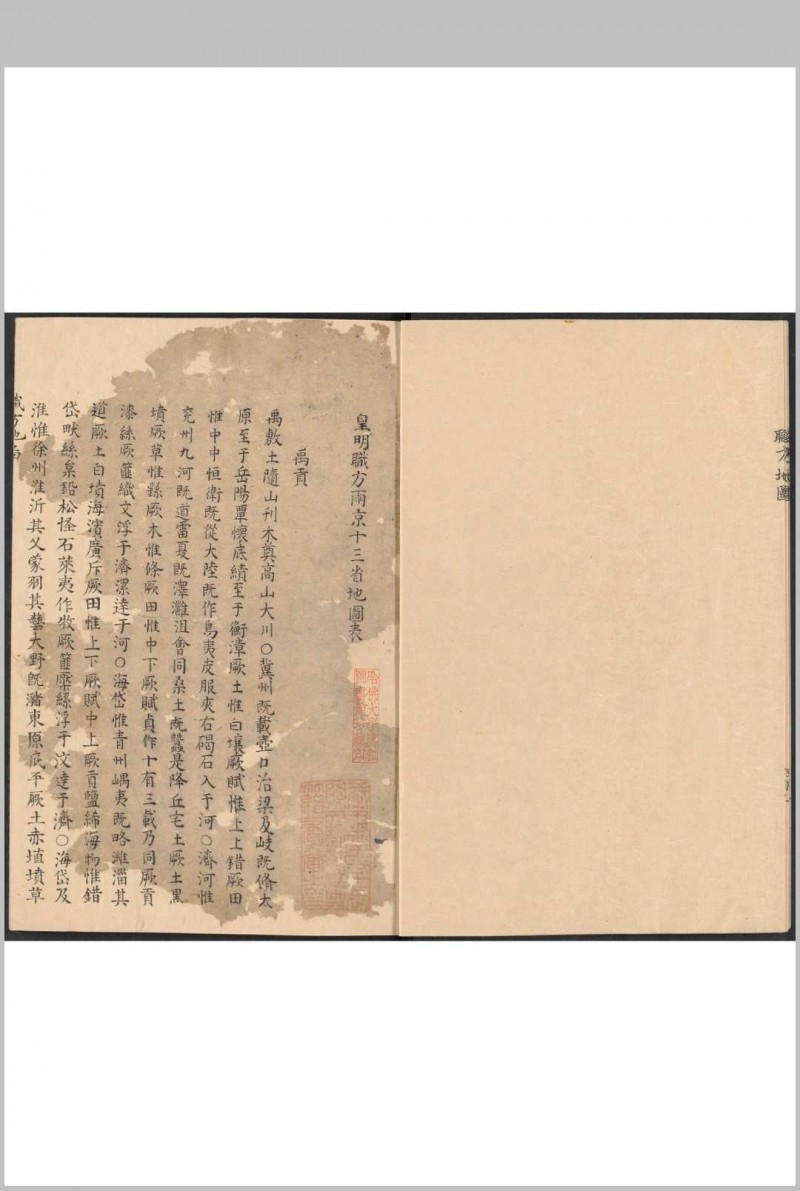 職方地圖
皇明職方兩京十三省地圖表
禹貢
禹敷土隨山刊木奠高山大川○冀州既載壺口治梁及岐既脩太
原至于岳陽覃懷底績至于衡漳厥土惟白壤厥賦惟上上錯厥田
惟中中恒衛既從大陸既作鳥夷皮服夾右碣石入于河○濟河惟
兖州九河既道雷夏既澤灉沮會同桑土既蠶是降丘宅土厥土黑
墳厥草惟繇厥木惟條厥田惟中下厥賦貞作十有三載乃同厥貢
漆絲厥篚織文浮于濟漯達于河○海岱惟青州嵎夷既略濰淄其
道厥土白墳海濱廣斥厥田惟上下厥賦中上厥貢鹽絺海物惟錯
岱畎絲枲鉛松怪石萊夷作牧厥篚檿絲浮于汶達于濟○海岱及
淮惟徐州淮沂其乂蒙羽其藝大野既豬東原底平厥土赤埴墳草
職方地啚